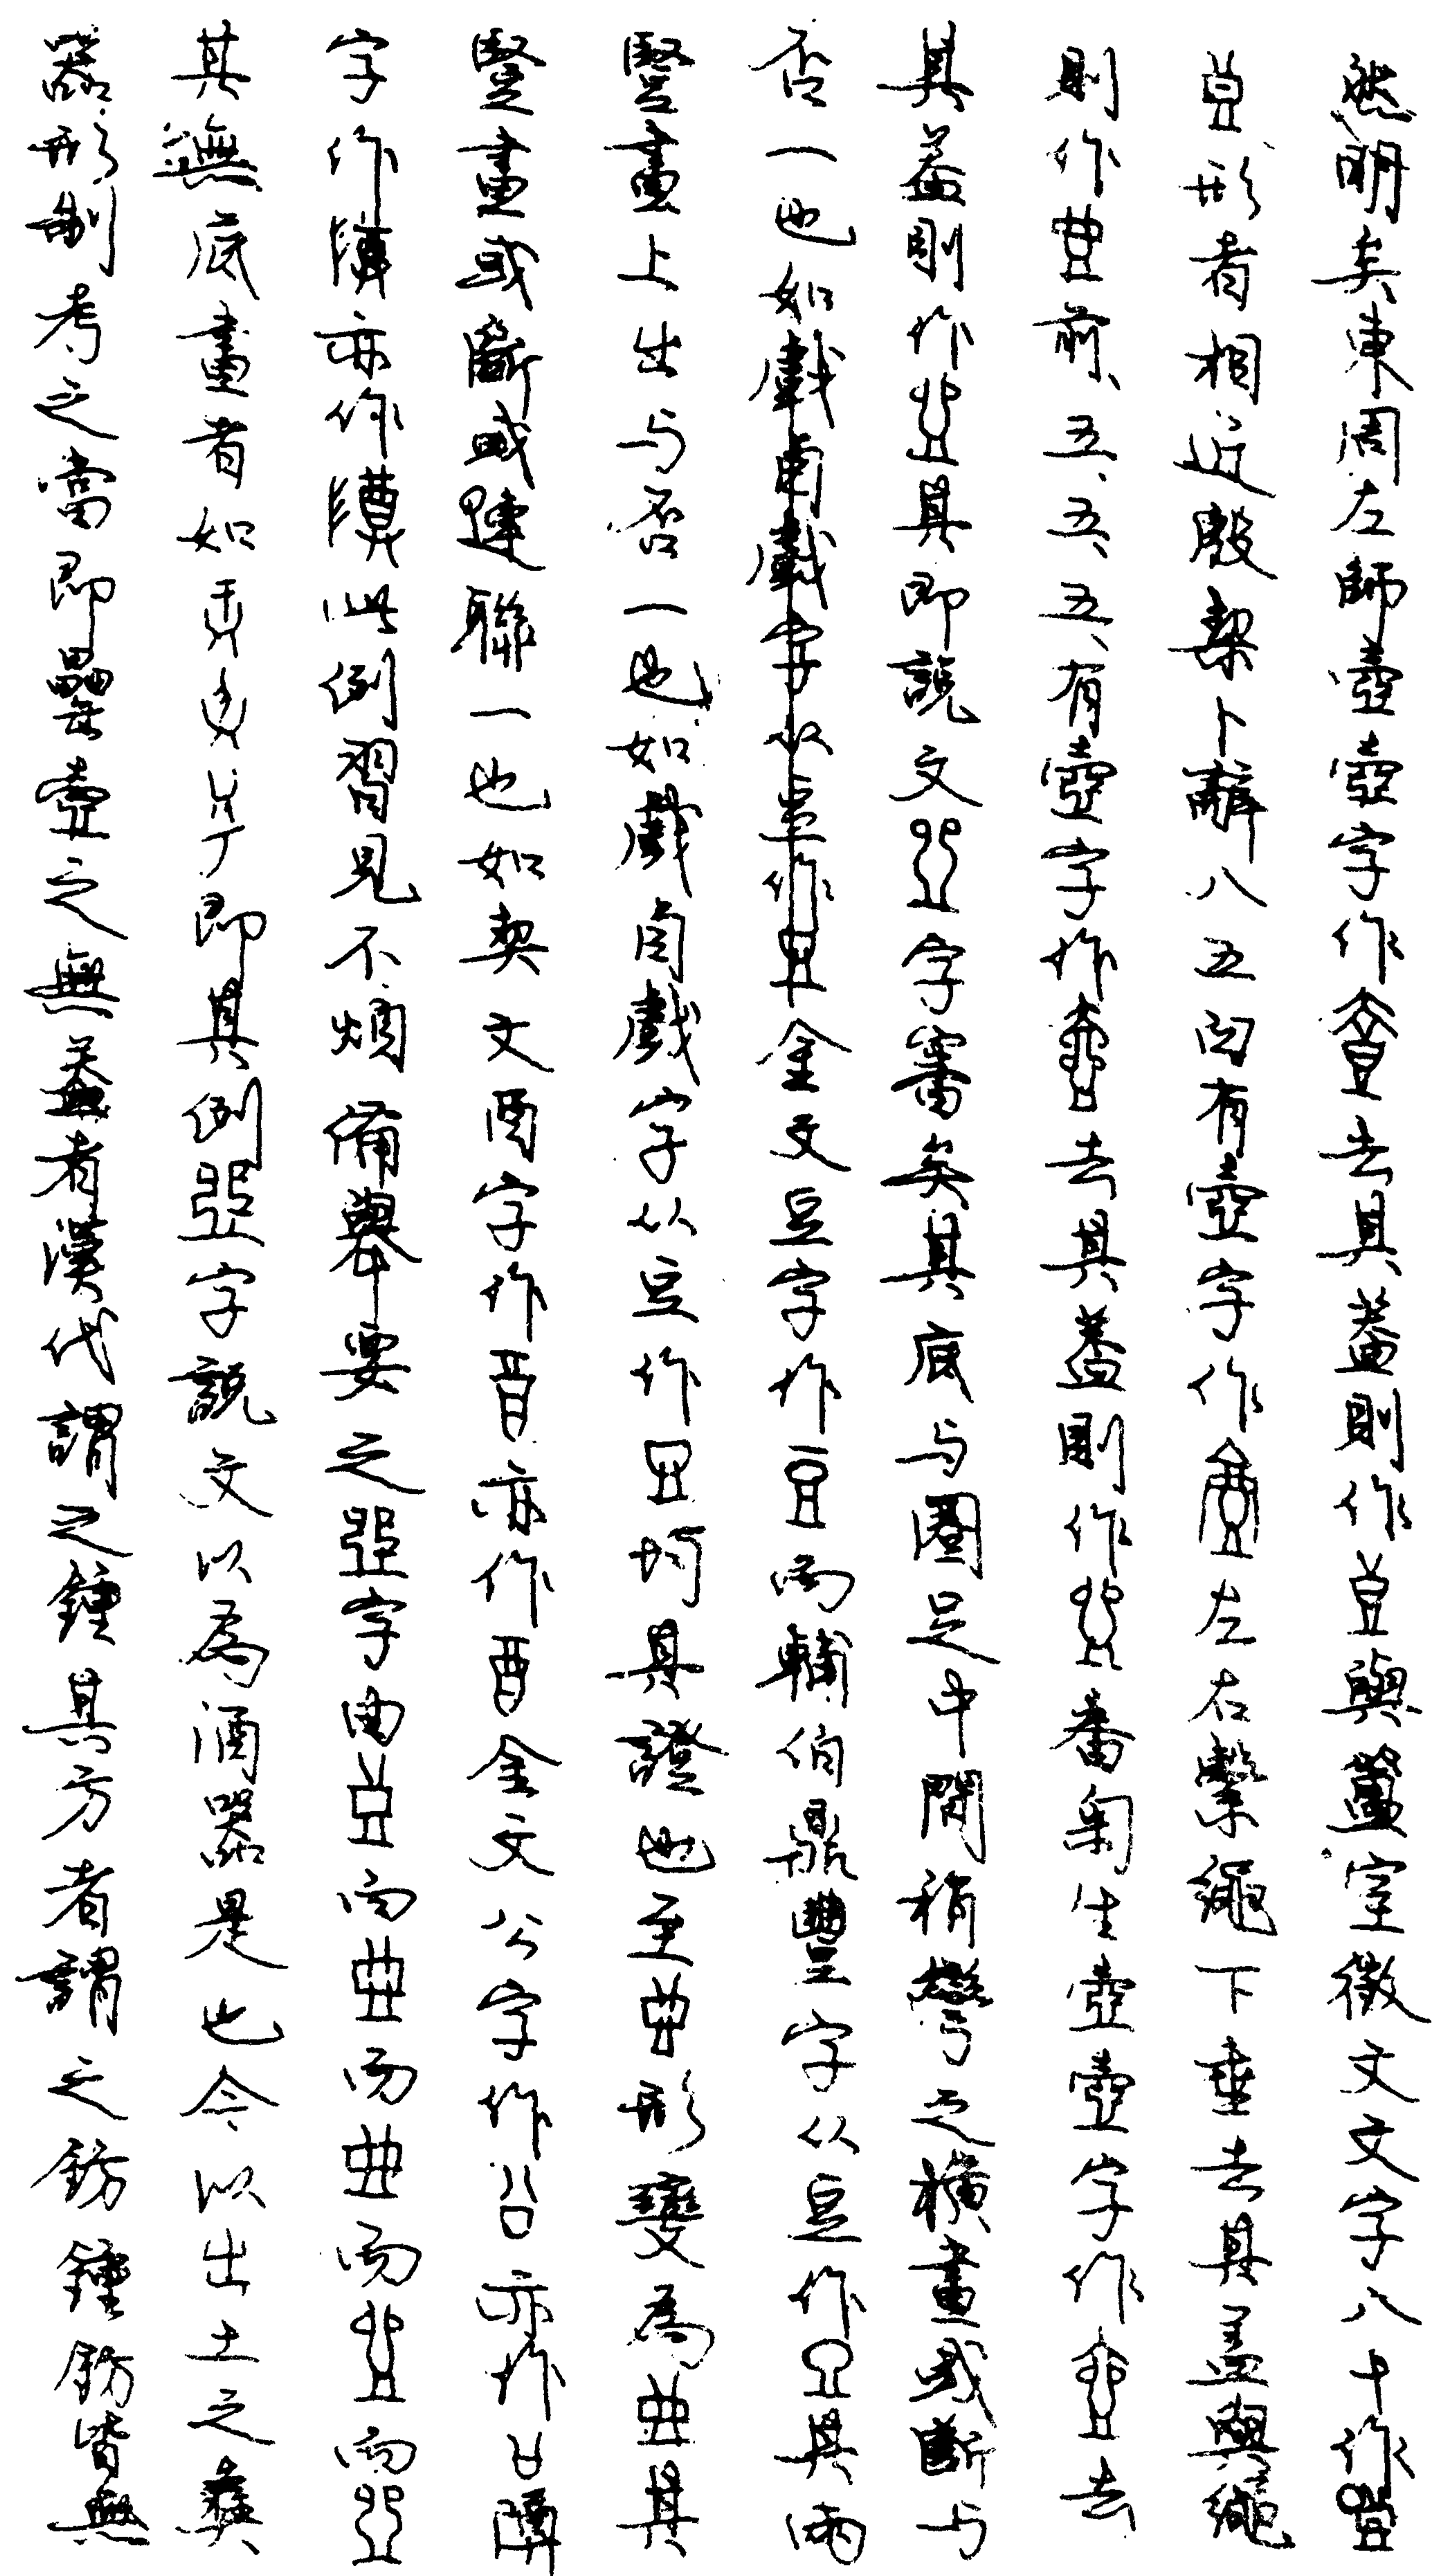 然明矣東周左師壺壺字作去其蓋則作與簠室徵文文字八十作
形者相近殷栔卜辭八五白有壺字作左右繫繩下垂去其盖與繩
則作前、五、五、五、有壺字作去其蓋則作番匊生壺壺字作去
其蓋則作其即說文字審矣其底与圈足中間稍彎之橫畫或斷与
否一也如戲卣戲字从豆作金文豆字作豆而輔伯鼎豐字从豆作其兩
豎畫上出与否一也如戲卣戲字从豆作均其證也至形變為其
豎畫或斷或連聯一也如契文酉字作亦作酉金文公字作亦作障
字作亦作此例習見不煩備舉要之字由而而而而
其無底畫者如即其例字說文以為酒器是也今以出土之彝
器形制考之當即罍壺之無蓋者漢代謂之鍾其方者謂之鈁鍾鈁皆無